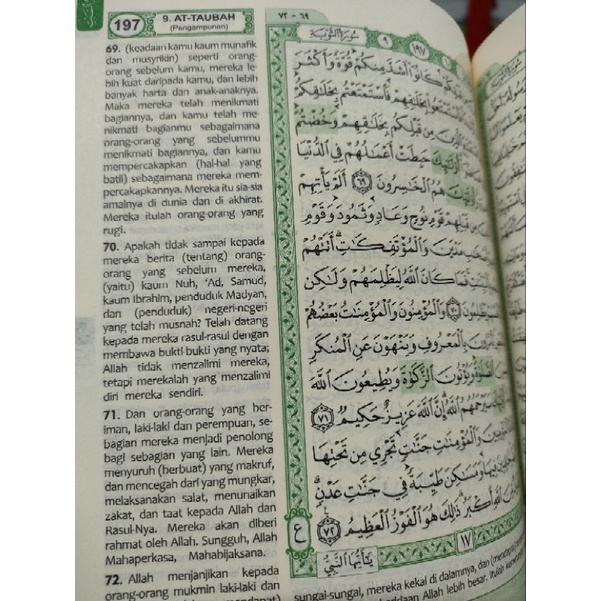 197
9. AT-TAUBAH
(Pengampunan)
69. (keadaan kamu kaum munafik
dan musyrikin) seperti orang-
orang sebelum kamu, mereka le-
bih kuat daripada kamu, dan lebih
banyak harta dan anak-anaknya.
Maka mereka telah menikmati
bagiannya, dan kamu telah me-
nikmati bagianmu sebagaimana
orang-orang yang sebelummu
menikmati bagiannya, dan kamu
mempercakapkan (hal-hal yang
batil) sebagaimana mereka mem-
percakapkannya. Mereka itu sia-sia
amalnya di dunia dan di akhirat.
Mereka itulah orang-orang yang
rugi.
70. Apakah tidak sampai kepada
mereka berita (tentang) orang-
orang yang sebelum mereka,
(yaitu) kaum Nuh, 'Ad, Samud,
kaum Ibrahim, penduduk Madyan,
dan (penduduk) negeri-negeri
yang telah musnah? Telah datang
kepada mereka rasul-rasul dengan
membawa bukti-bukti yang nyata;
Allah tidak menzalimi mereka,
tetapi merekalah yang menzalimi
diri mereka sendiri.
71. Dan orang-orang yang ber-
iman, laki-laki dan perempuan, se-
bagian mereka menjadi penolong
bagi sebagian yang lain. Mereka
menyuruh (berbuat) yang makruf,
dan mencegah dari yang mungkar,
melaksanakan salat, menunaikan
zakat, dan taat kepada Allah dan
Rasul-Nya. Mereka akan diberi
rahmat oleh Allah. Sungguh, Allah
Mahaperkasa, Mahabijaksana.
72. Allah menjanjikan kepada
orang-orang mukmin laki-laki dan
٦٩ - ٧٢
سُورَةُ التَّوْبَةِ ١٩٧ ٩
كَانُوٓا أَشَدَّ مِنكُمْ قُوَّةً وَأَكْثَرَ
فَاسْتَمْتَعُوا بِخَلَاقِهِمْ فَاسْتَمْتَعْتُم بِخَلَاقِكُمْ
مِن قَبْلِكُم بِخَلَاقِهِمْ وَخُضْتُمْ
أُولَٰئِكَ حَبِطَتْ أَعْمَالُهُمْ فِي الدُّنْيَا
هُمُ الْخَاسِرُونَ ٦٩ أَلَمْ يَأْتِهِمْ
مِن قَبْلِهِمْ قَوْمِ نُوحٍ وَعَادٍ وَثَمُودَ وَقَوْمِ
مَدْيَنَ وَالْمُؤْتَفِكَاتِ ۚ أَتَتْهُمْ
فَمَا كَانَ اللَّهُ لِيَظْلِمَهُمْ وَلَٰكِن
يَظْلِمُونَ ٧٠ وَالْمُؤْمِنُونَ وَالْمُؤْمِنَاتُ بَعْضُهُمْ
بِالْمَعْرُوفِ وَيَنْهَوْنَ عَنِ الْمُنكَرِ
وَيُؤْتُونَ الزَّكَاةَ وَيُطِيعُونَ اللَّهَ
سَيَرْحَمُهُمُ اللَّهُ ۗ إِنَّ اللَّهَ عَزِيزٌ حَكِيمٌ ٧١
وَالْمُؤْمِنَاتِ جَنَّاتٍ تَجْرِي مِن تَحْتِهَا
فِيهَا وَمَسَاكِنَ طَيِّبَةً فِي جَنَّاتِ عَدْنٍ ۚ
اللَّهِ أَكْبَرُ ۚ ذَٰلِكَ هُوَ الْفَوْزُ الْعَظِيمُ ٧٢
ع
١٧
يَٰٓأَيُّهَا النَّبِيُّ
sungai-sungai, mereka kekal di dalamnya, dan
Allah lebih besar. Itulah